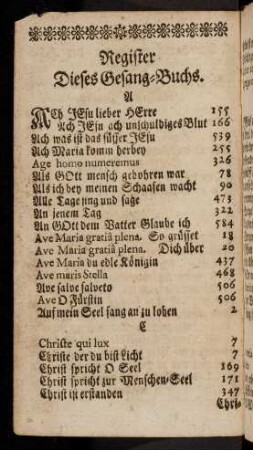 Register
Dieses Gesang-Buchs.
A
ACh JEsu lieber HErre 155
Ach JEsu ach unschuldiges Blut 166
Ach was ist das süsser JEsu 539
Ach Maria komm herbey 255
Age homo numeremus 326
Als GOtt mensch gebohren war 78
Als ich bey meinen Schaafen wacht 90
Alle Tage sing und sage 473
An jenem Tag 322
An GOtt dem Vatter Glaube ich 584
Ave Maria gratiâ plena. So grüsset 18
Ave Maria gratiâ plena. Dich über 20
Ave Maria du edle Königin 437
Ave maris Stella 468
Ave salve salveto 506
Ave O Fürstin 506
Auf mein Seel fang an zu loben 2
C
Christe qui lux 7
Christe der du bist Licht 7
Christ spricht O Seel 169
Christ spricht zur Menschen-Seel 171
Christ ist erstanden 347
Chri-